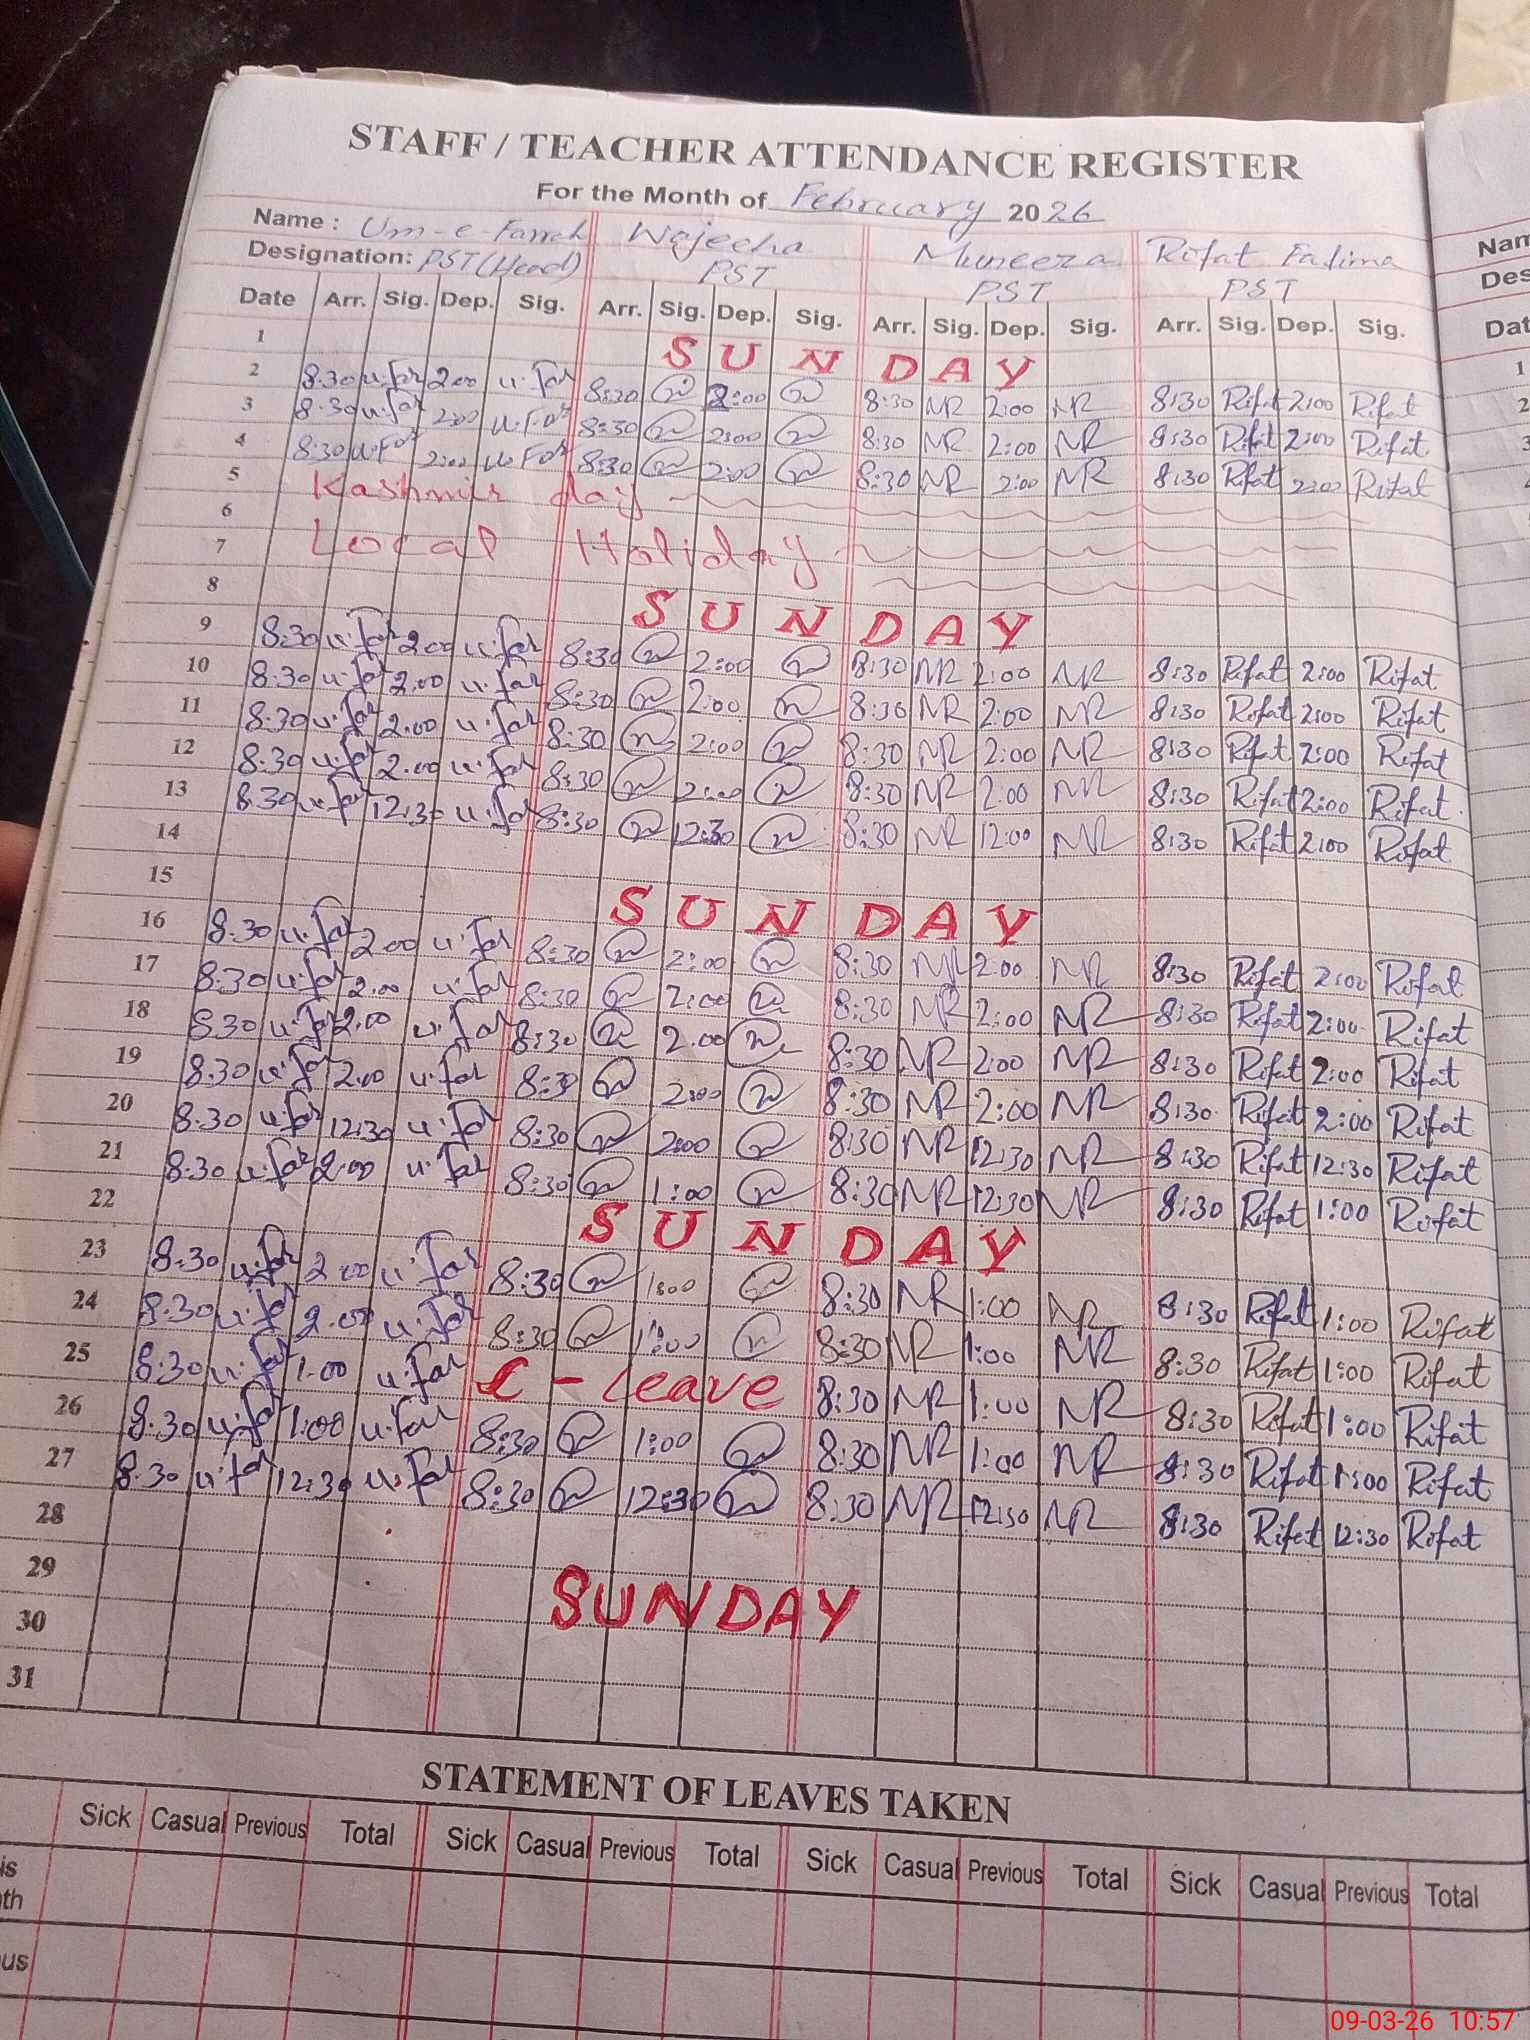 STAFF / TEACHER ATTENDANCE REGISTER
For the Month of February 2026
Name : Um-e-Farrah Wajeeha Muneeza Rifat Fatima
Designation: PST (Head) PST PST PST
Date Arr. Sig. Dep. Sig. Arr. Sig. Dep. Sig. Arr. Sig. Dep. Sig. Arr. Sig. Dep. Sig.
1 SUNDAY
2 8:30 u.far 2:00 u.far 8:30 2:00 8:30 NR 2:00 NR 8:30 Rifat 2:00 Rifat
3 8:30 u.far 2:00 u.far 8:30 2:00 8:30 NR 2:00 NR 8:30 Rifat 2:00 Rifat
4 8:30 u.far 2:00 u.far 8:30 2:00 8:30 NR 2:00 NR 8:30 Rifat 2:00 Rifat
5 Kashmir day
6
7 Local Holiday
8 SUNDAY
9 8:30 u.far 2:00 u.far 8:30 2:00 8:30 NR 2:00 NR 8:30 Rifat 2:00 Rifat
10 8:30 u.far 2:00 u.far 8:30 2:00 8:30 NR 2:00 NR 8:30 Rifat 2:00 Rifat
11 8:30 u.far 2:00 u.far 8:30 2:00 8:30 NR 2:00 NR 8:30 Rifat 2:00 Rifat
12 8:30 u.far 2:00 u.far 8:30 2:00 8:30 NR 2:00 NR 8:30 Rifat 2:00 Rifat
13 8:30 u.far 12:30 u.far 8:30 12:30 8:30 NR 12:00 NR 8:30 Rifat 2:00 Rifat
14
15 SUNDAY
16 8:30 u.far 2:00 u.far 8:30 2:00 8:30 NR 2:00 NR 8:30 Rifat 2:00 Rifat
17 8:30 u.far 2:00 u.far 8:30 2:00 8:30 NR 2:00 NR 8:30 Rifat 2:00 Rifat
18 8:30 u.far 2:00 u.far 8:30 2:00 8:30 NR 2:00 NR 8:30 Rifat 2:00 Rifat
19 8:30 u.far 2:00 u.far 8:30 2:00 8:30 NR 2:00 NR 8:30 Rifat 2:00 Rifat
20 8:30 u.far 12:30 u.far 8:30 2:00 8:30 NR 12:30 NR 8:30 Rifat 12:30 Rifat
21 8:30 u.far 2:00 u.far 8:30 1:00 8:30 NR 12:30 NR 8:30 Rifat 1:00 Rifat
22 SUNDAY
23 8:30 u.far 2:00 u.far 8:30 1:00 8:30 NR 1:00 NR 8:30 Rifat 1:00 Rifat
24 8:30 u.far 2:00 u.far 8:30 1:00 8:30 NR 1:00 NR 8:30 Rifat 1:00 Rifat
25 8:30 u.far 1:00 u.far C-Leave 8:30 NR 1:00 NR 8:30 Rifat 1:00 Rifat
26 8:30 u.far 1:00 u.far 8:30 1:00 8:30 NR 1:00 NR 8:30 Rifat 1:00 Rifat
27 8:30 u.far 12:30 u.far 8:30 12:30 8:30 NR 12:30 NR 8:30 Rifat 12:30 Rifat
28
29 SUNDAY
30
31
STATEMENT OF LEAVES TAKEN
Sick Casual Previous Total Sick Casual Previous Total Sick Casual Previous Total Sick Casual Previous Total
09-03-26 10:57